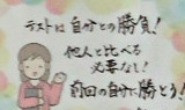 テストは自分との勝負!
他人と比べる
必要なし!
前回の自分に勝とう!